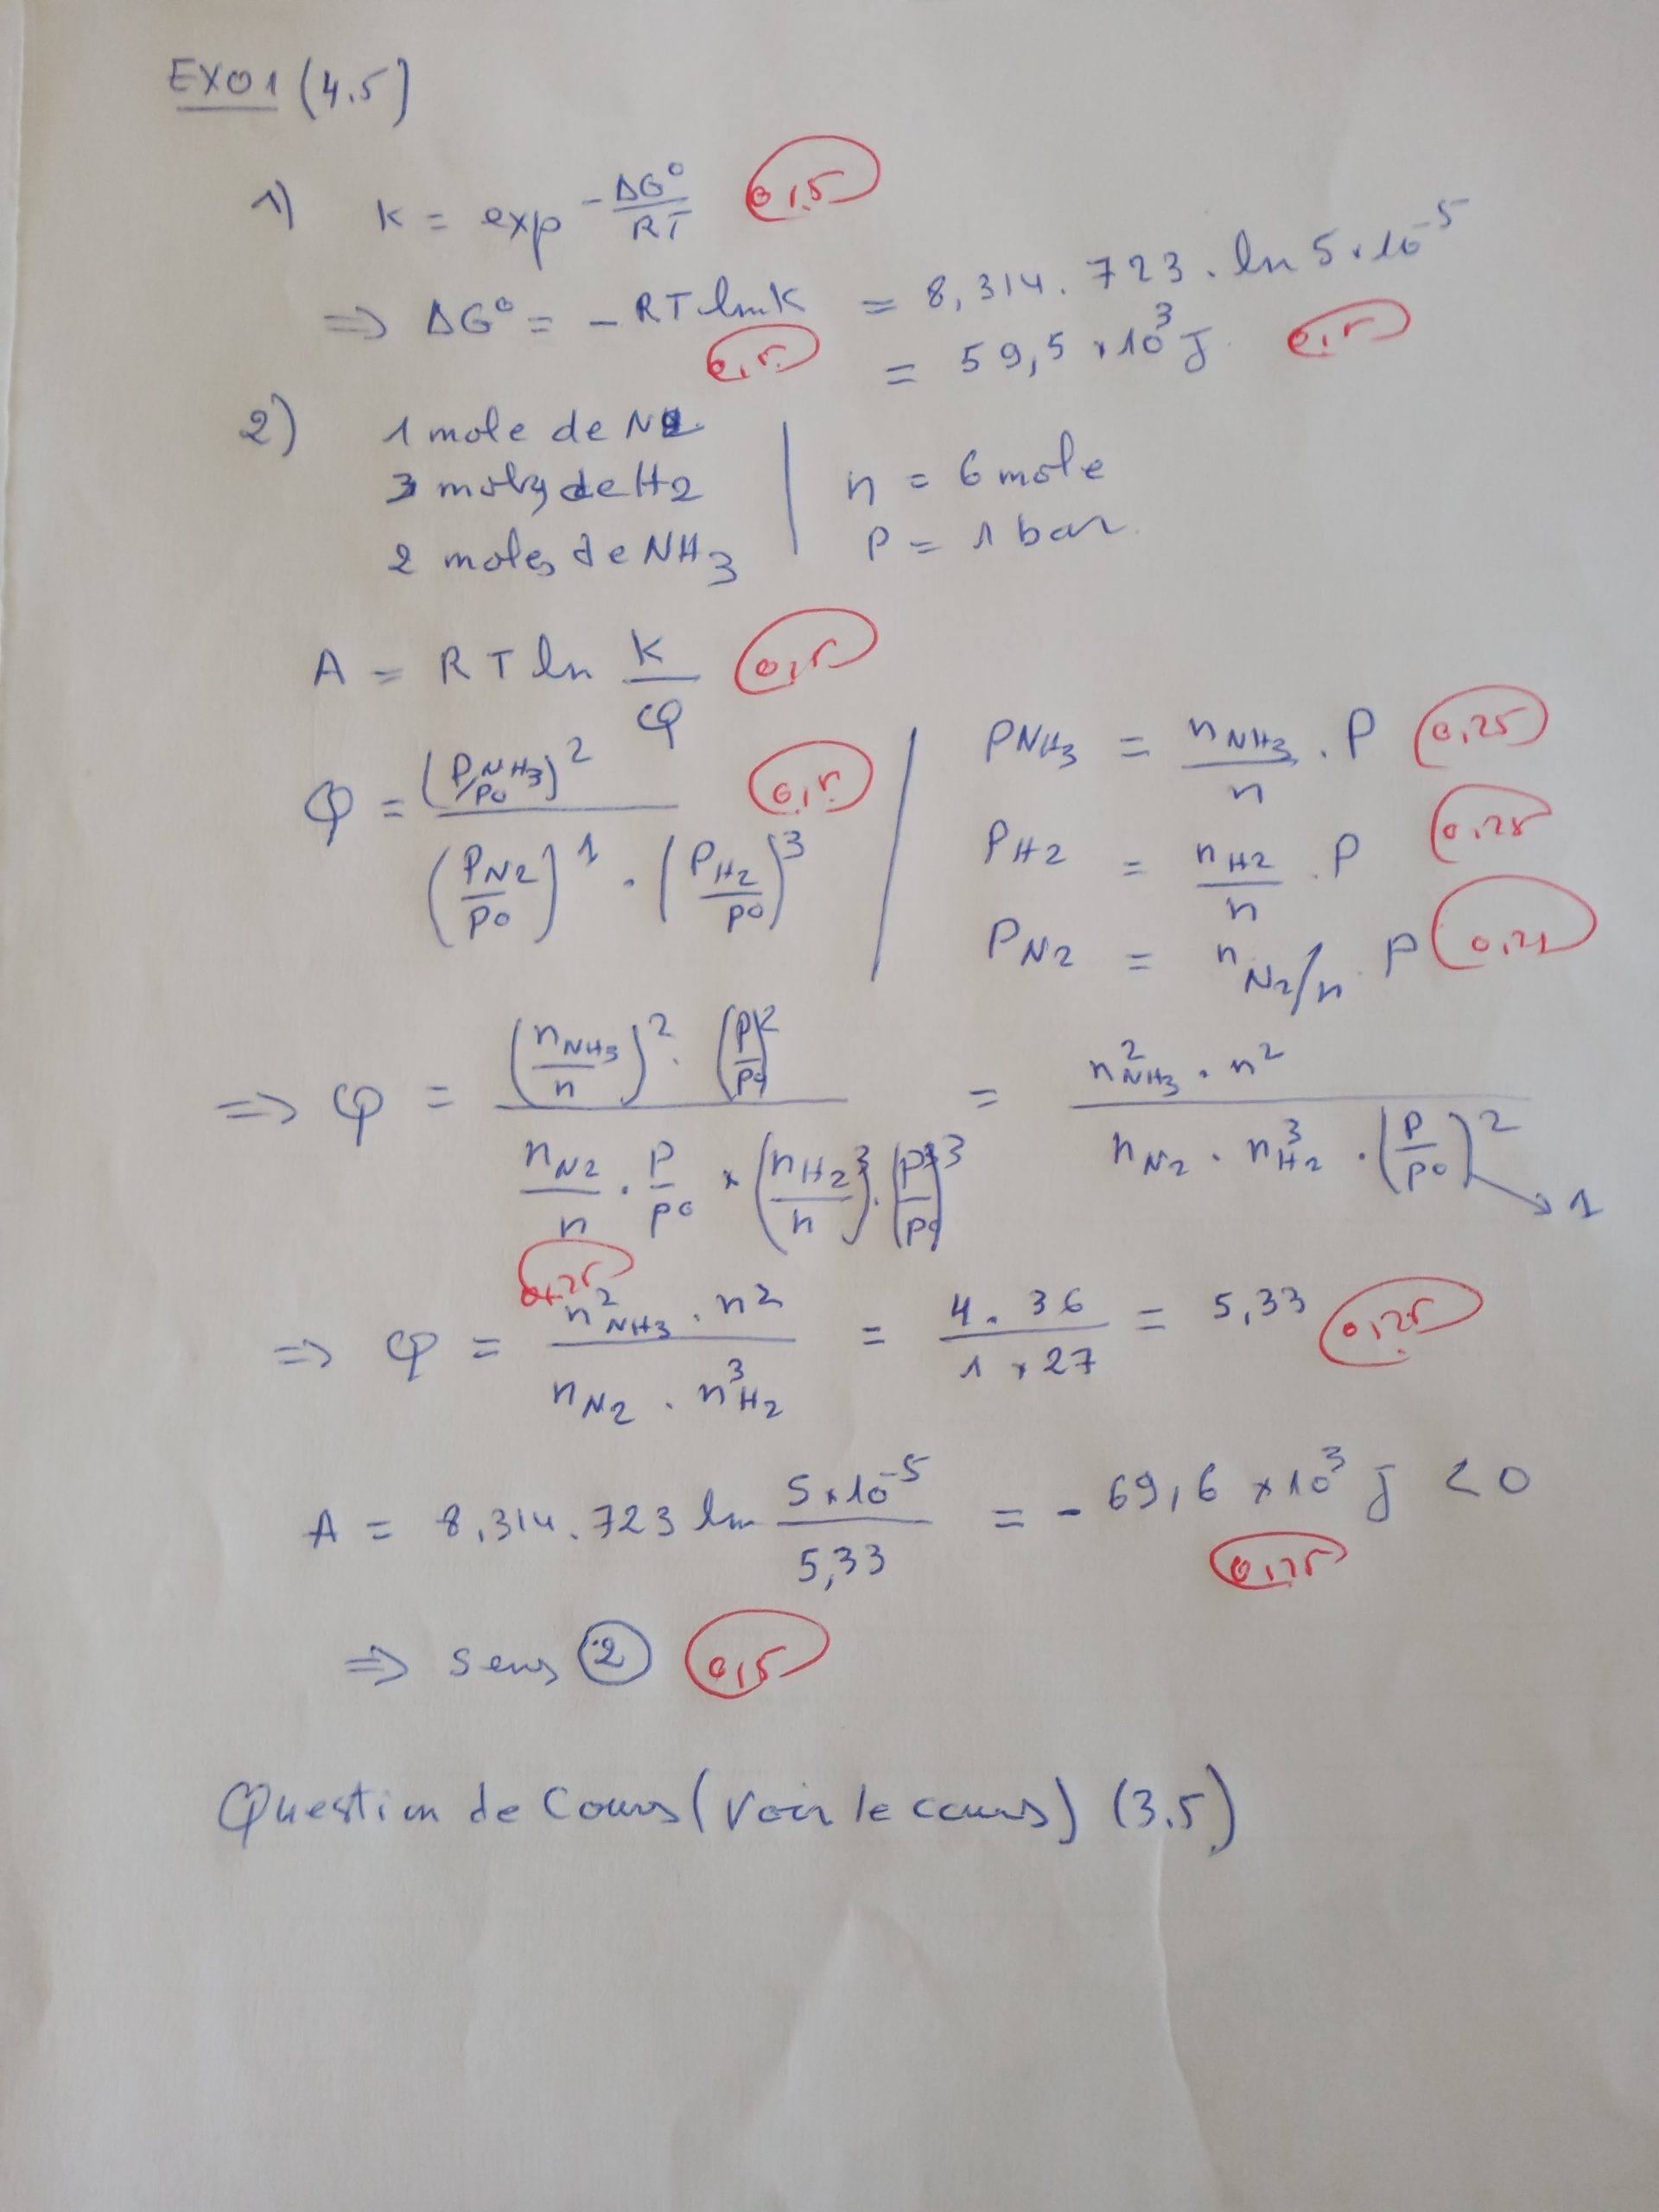 EXO1 (4.5)
1) K = exp -ΔG°/RT 0,5
=> ΔG° = - RT ln K = 8,314 . 723 . ln 5 × 10^-5
0,5 = 59,5 × 10^3 J 0,5
2) 1 mole de N2
3 moles de H2 | n = 6 mole
2 moles de NH3 | P = 1 bar
A = RT ln K/φ 0,5
φ = (PNH3/P0)^2 / (PN2/P0)^1 . (PH2/P0)^3 0,5
PNH3 = nNH3/n . P 0,25
PH2 = nH2/n . P 0,25
PN2 = nN2/n . P 0,25
=> φ = (nNH3/n)^2 . (P/P0)^2 / nN2/n . P/P0 × (nH2/n)^3 . (P/P0)^3 = n^2NH3 . n^2 / nN2 . n^3H2 . (P/P0)^2 → 1
0,25
=> φ = n^2NH3 . n^2 / nN2 . n^3H2 = 4 . 36 / 1 × 27 = 5,33 0,25
A = 8,314 . 723 ln 5 × 10^-5 / 5,33 = - 69,6 × 10^3 J < 0
0,25
=> sens 2 0,5
Question de Cours (Voir le cours) (3.5)